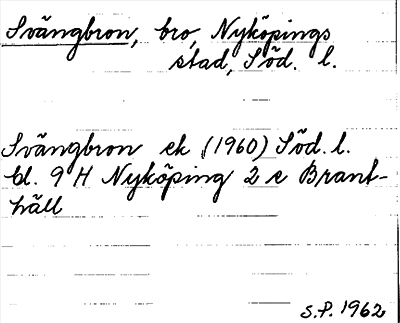 Svängbron, bro, Nyköpings
stad, Söd. l.
Svängbron ek (1960) Söd. l.
bl. 9 H Nyköping 2 c Brant-
häll
S.P. 1962